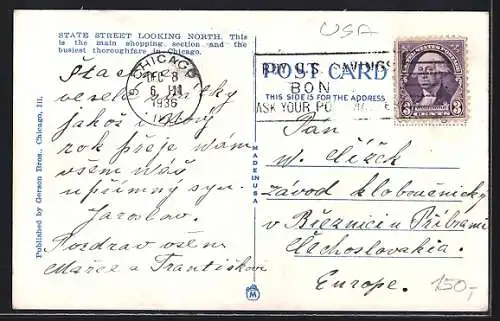 USA
STATE STREET LOOKING NORTH. This
is the main shopping section and the
busiest thoroughfare in Chicago.
CHICAGO
DEC 8
1936
POST CARD
THIS SIDE IS FOR THE ADDRESS
BUY U.S. SAVINGS
BON
ASK YOUR PO
3 CENTS 3
Published by Gerson Bros., Chicago, Ill.
MADE IN USA
veselé svátky
jakož i nový
rok přeje vám
všem váš
upřímný syn.
Jaroslav.
Pozdrav všem
Mařce a Františkovi
Pán
závod kloboučnický
v Březnici u Příbrami
Čechoslovakia.
Europe.
150,-
M